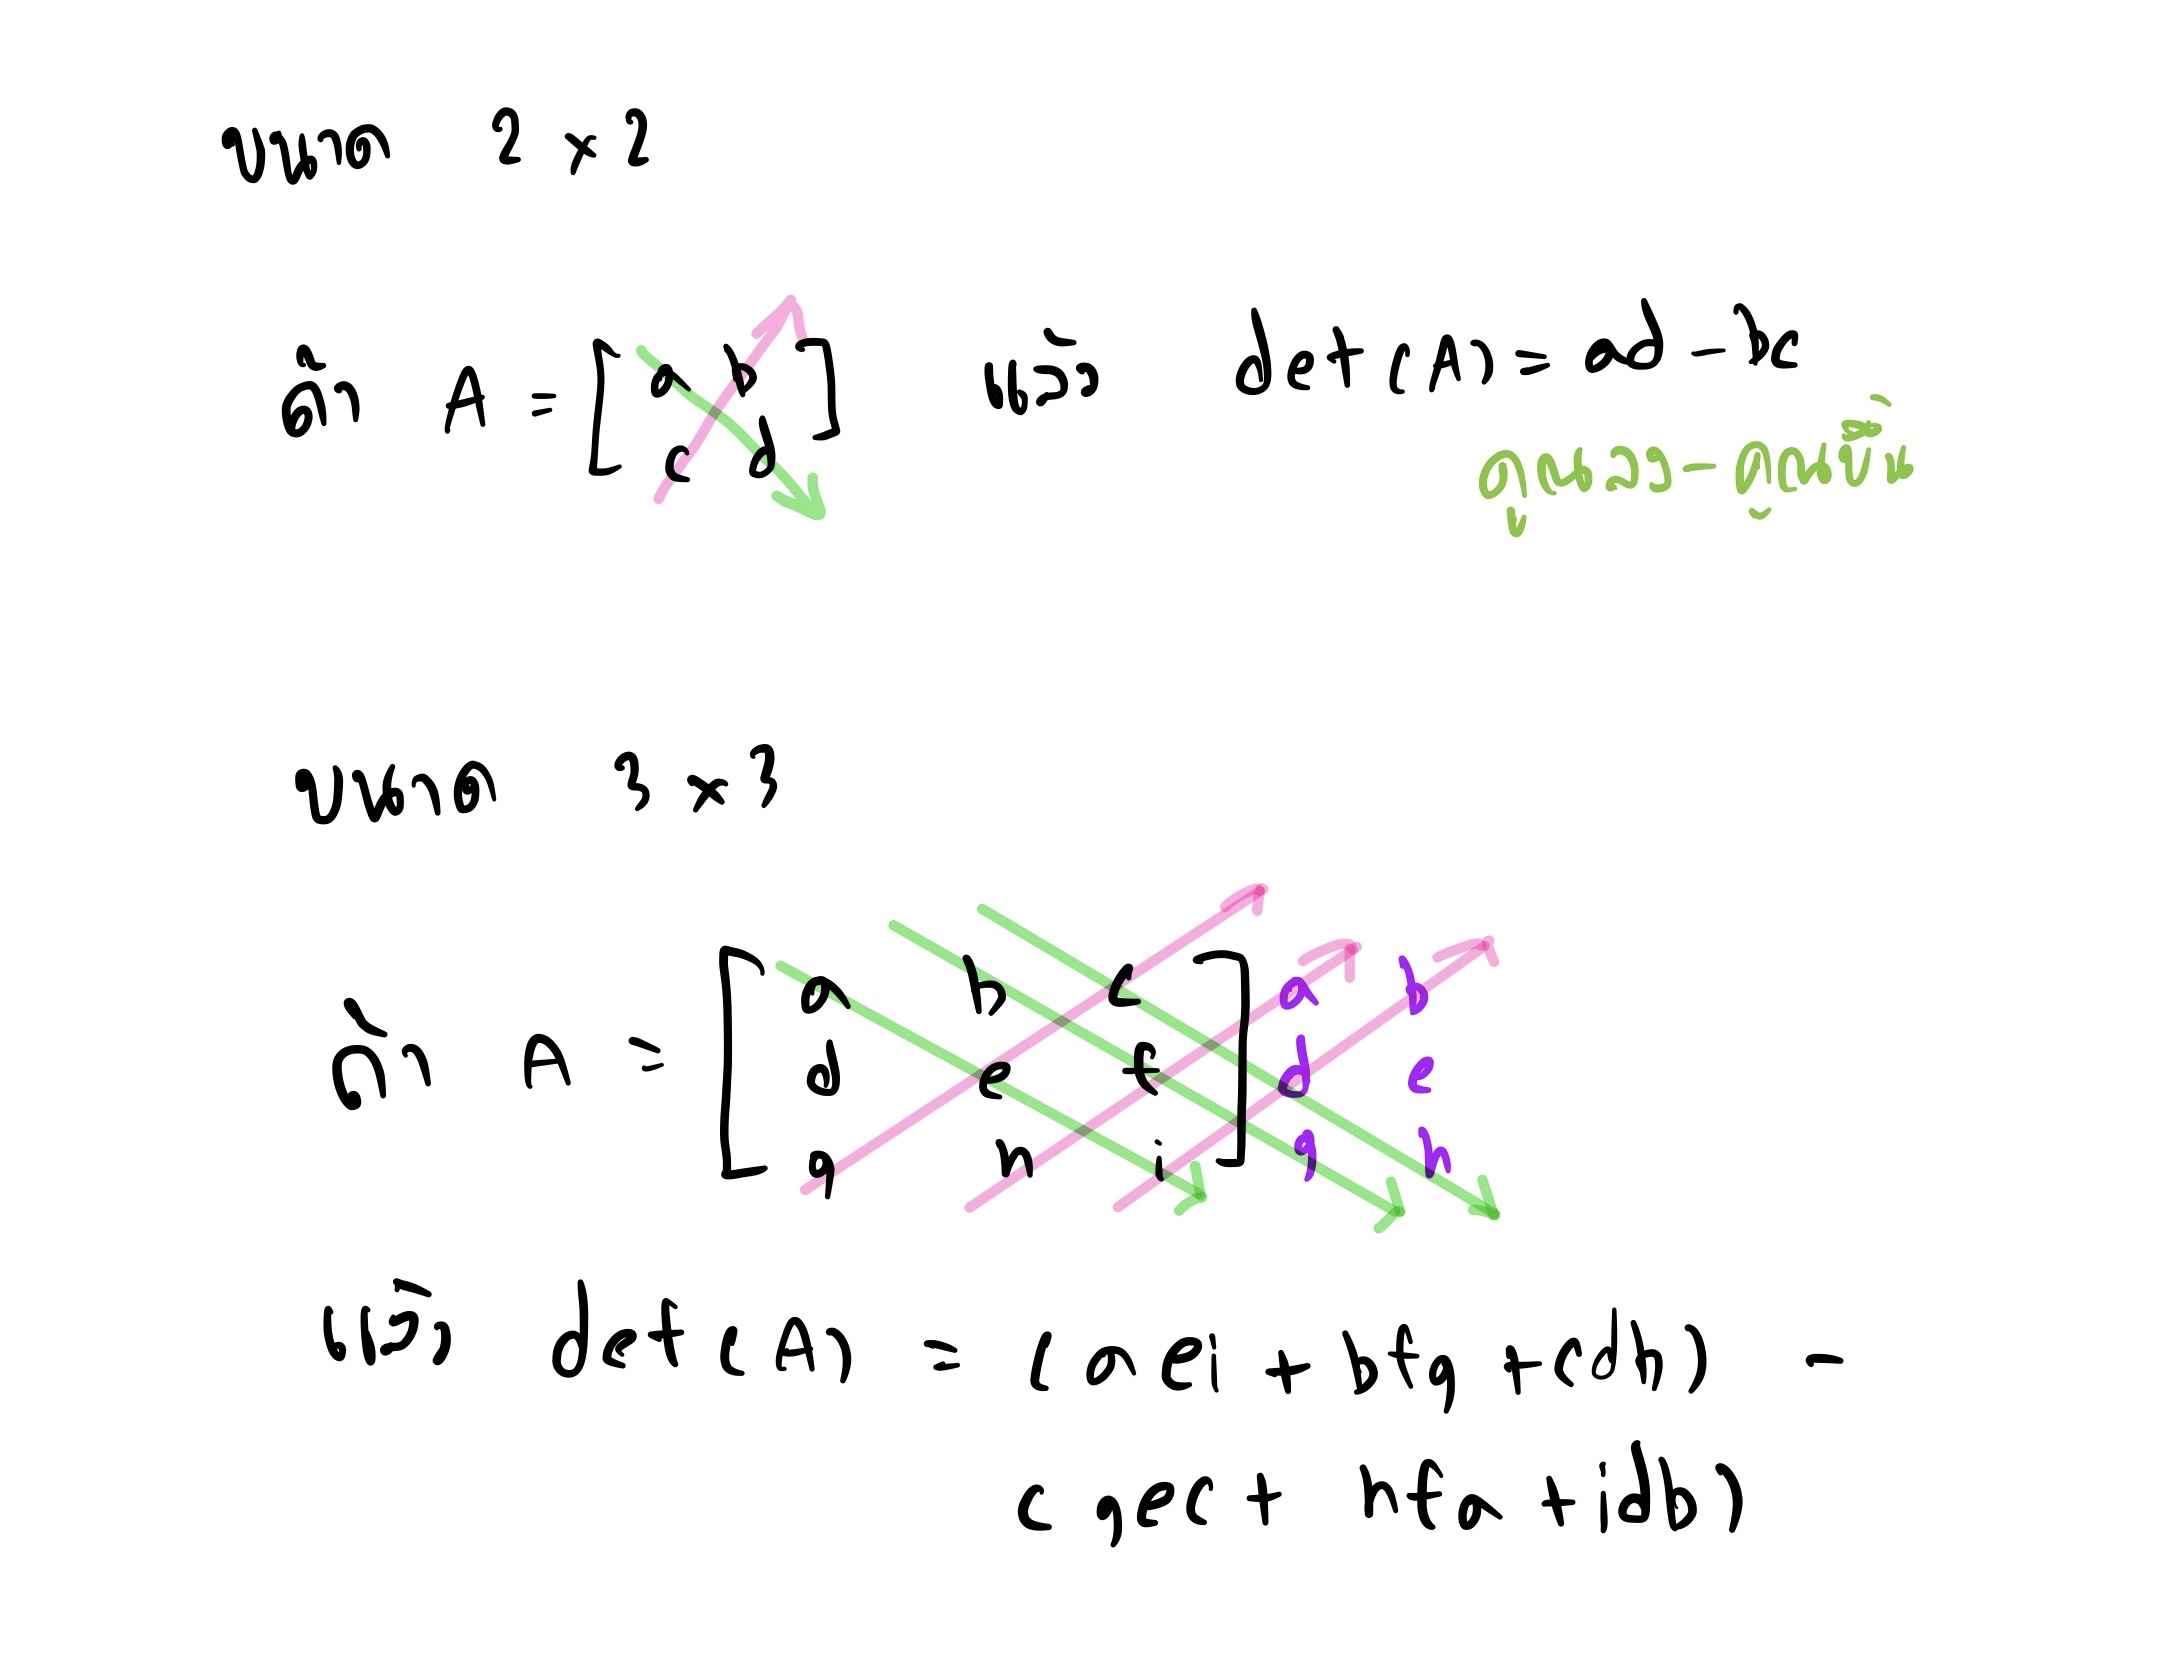 ขนาด 2 × 2
ถ้า A = [ a b แล้ว det(A) = ad - bc
c d ] คูณลง - คูณขึ้น
ขนาด 3 × 3
ถ้า A = [ a b c ] a b
d e f d e
g h i g h
แล้ว det(A) = (aei + bfg + cdh) -
(gec + hfa + idb)